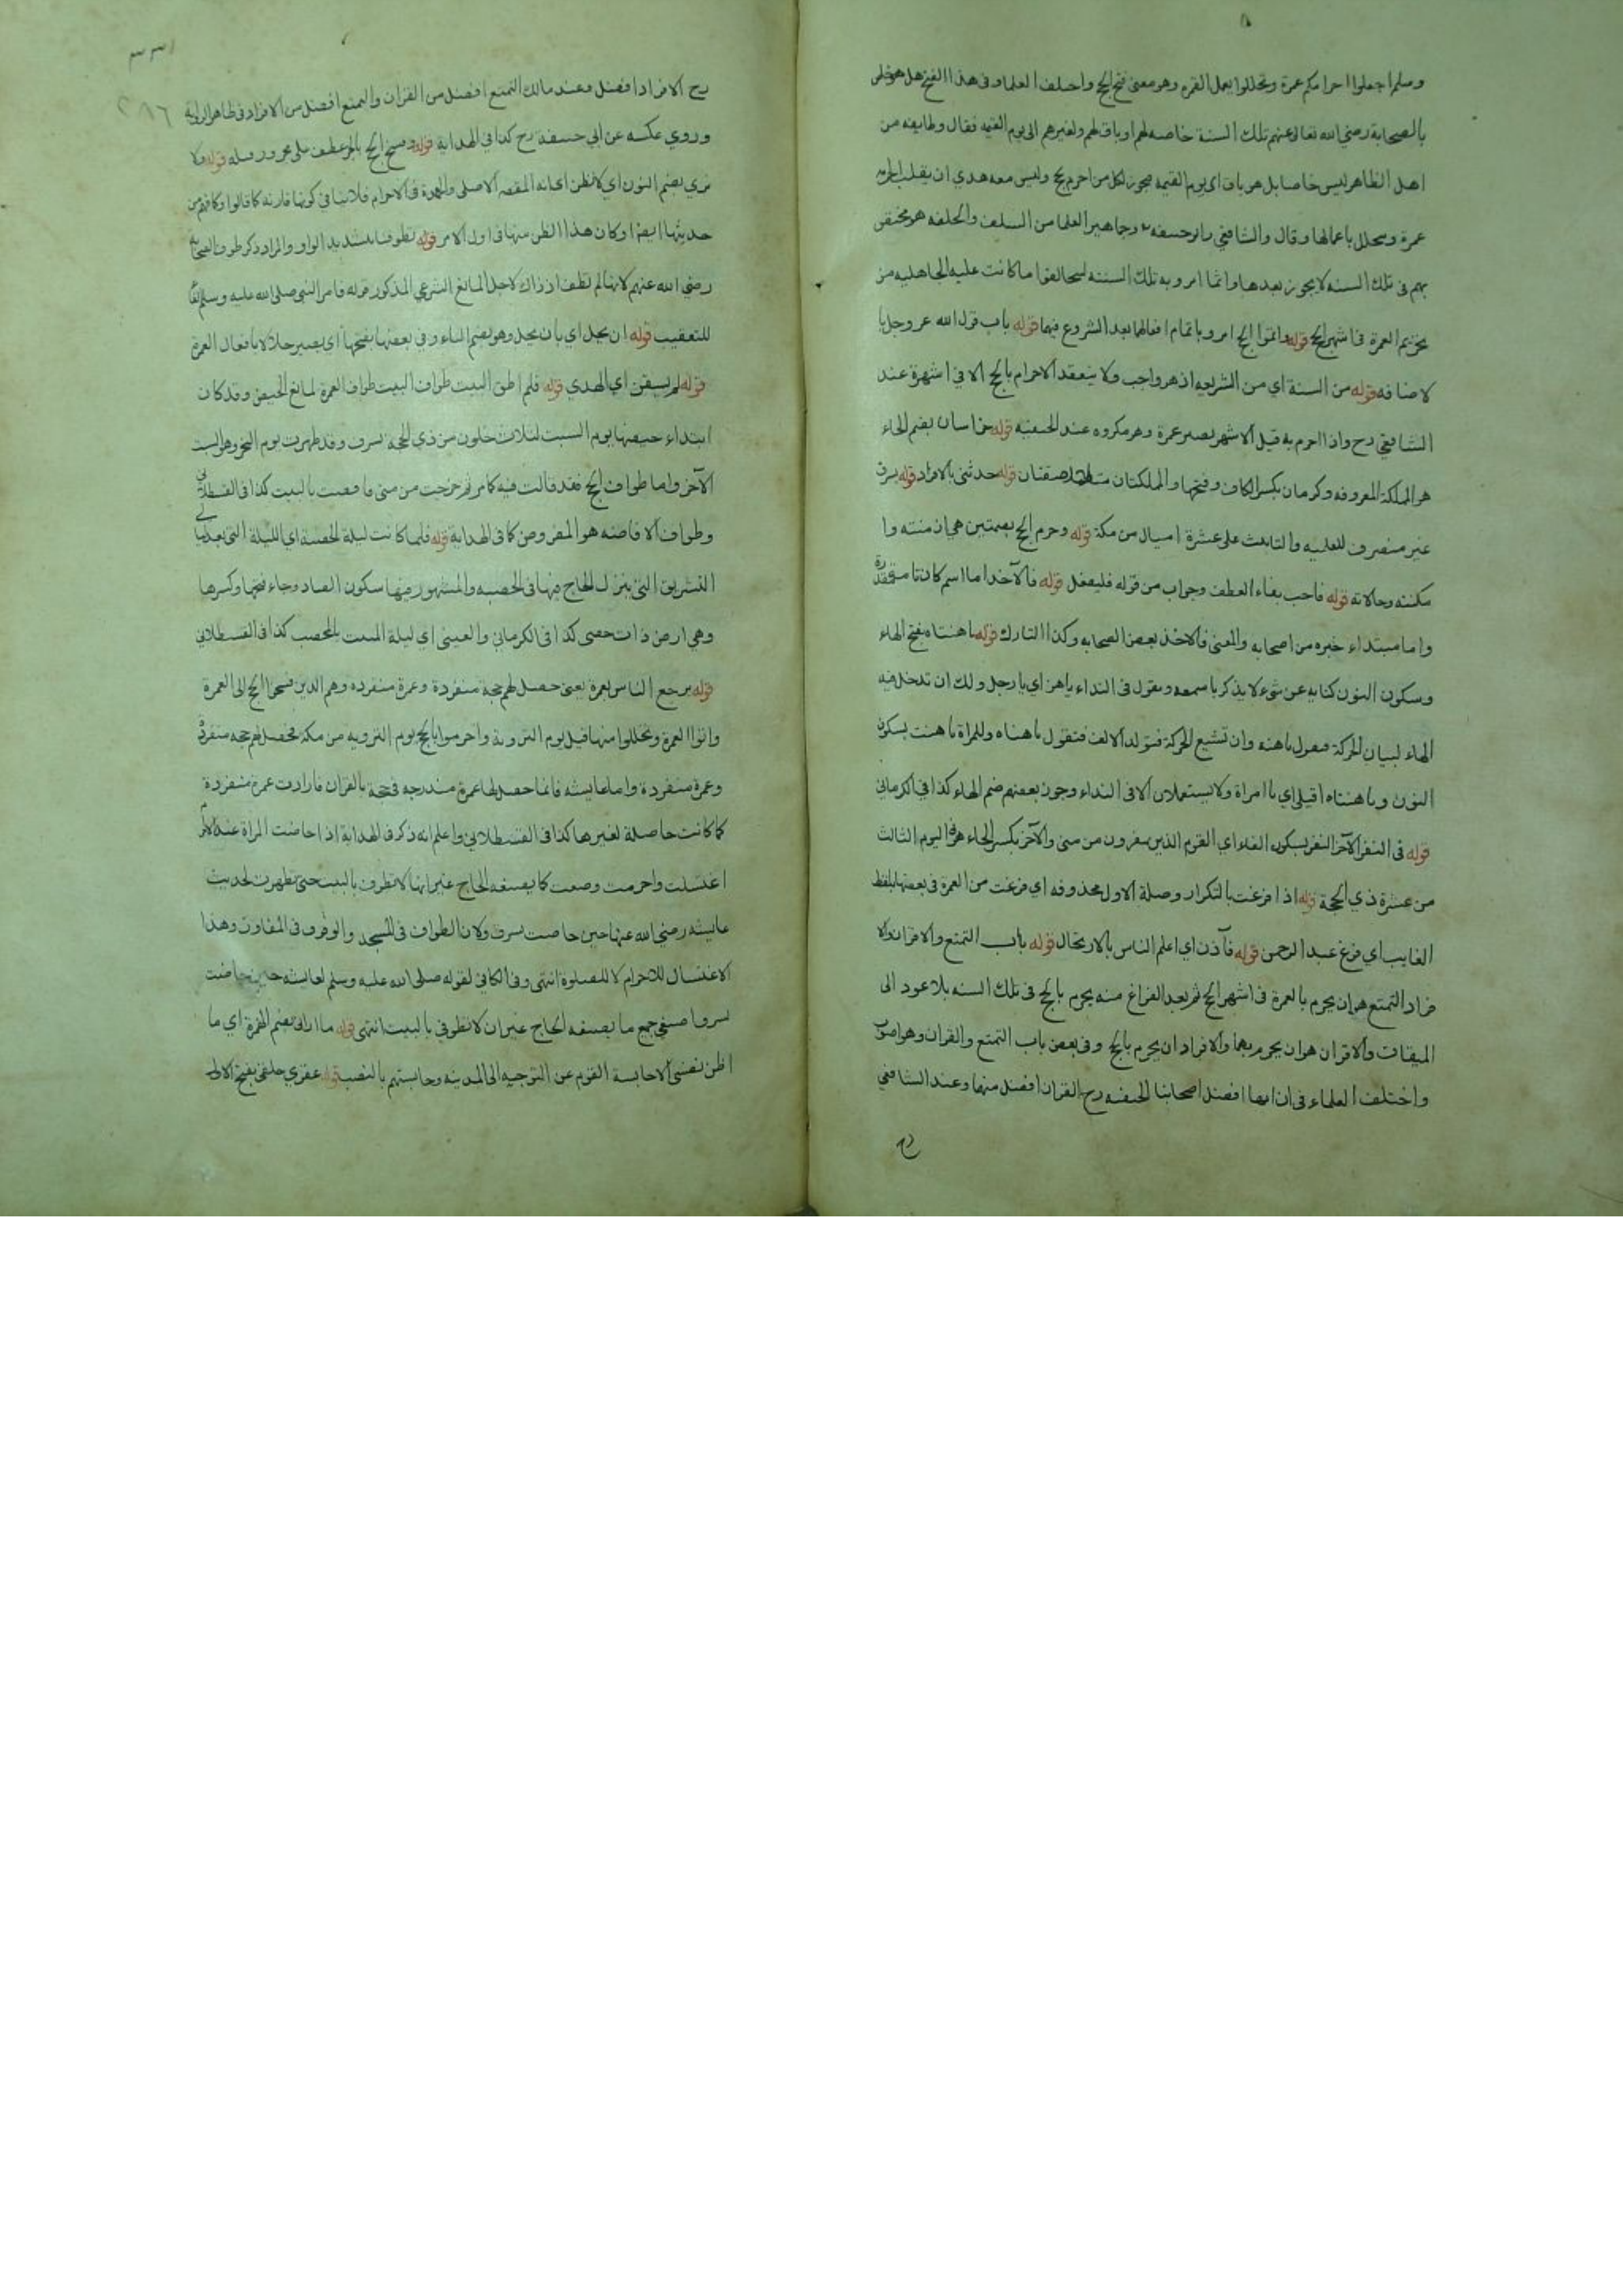 وسلم اجعلوا احرامكم عمرة وتحللوا بعمل العمرة وهو معنى فسخ الحج واختلف العلما وفى هذا الفسخ هل هو خاص
بالصحابة رضي الله تعالى عنهم تلك السنة خاصة لهم او باق لهم ولغيرهم الى يوم القيمه فقال وطايفه من
اهل الظاهر ليس خاصا بل هو باق اى يوم القيمة فيجوز لكل من احرم بحج وليس معه هدي ان يقلب احرامه
عمرة ويتحلل باعمالها وقال والشافعي وابو حنيفه وجماهير العلما من السلف والخلف هو مختص
بهم فى تلك السنه لا يجوز بعدها وانما امروا به تلك السنه ليخالفوا ما كانت عليه الجاهليه من
تحريم العمرة فى اشهر الحج قوله واتموا الحج امروا باتمام افعالهما بعد الشروع فيهما قوله باب قول الله عز وجل با
لاضافه قوله من السنة اي من الشريعه اذ هو واجب ولا ينعقد الاحرام بالحج الا في اشهره عند
الشافعي رح واذا احرم به قبل الاشهر يصير عمرة وهو مكروه عند الحنفيه قوله خراسان بضم الخاء
هو المملكة المعروفه وكرمان بكسر الكاف وفتحها والمملكتان متلاصقتان قوله حدثنى بالافراد قوله بسرف
غير منصرف للعلميه والتانيث على عشرة اميال من مكة قوله وحرم الحج بضمتين هي ازمنته وا
مكنته وحالاته قوله فاحب بفاء العطف وجواب من قوله فليفعل قوله فالآخذ اما اسم كان تامة مقدرة
واما مبتداء خبره من اصحابه والمعنى فالاخذ بعض الصحابه وكذا التارك قوله ياهنتاه بفتح الهاء
وسكون النون كنايه عن شيء لا يذكر باسمه وتقول فى النداء ياهن اي يا رجل ولك ان تدخل فيه
الهاء لبيان الحركة فتقول ياهنه وان تشبع الحركة فتولد الالف فتقول ياهناه وللمراة ياهنت بسكون
النون وياهنتاه اقبلي اي يا امراة ولا يستعملان الا فى النداء وجوز بعضهم ضم الهاء كذا في الكرماني
قوله فى النفر الآخر النفر بسكون الفاء اي القوم الذين ينفرون من منى والآخر بكسر الخاء هو اليوم الثالث
من عشرة ذي الحجة قوله اذا فرغت بالتكرار وصلة الاول محذوفه اي فرغت من العمرة فى بعضها بلفظ
الغايب اي فرغ عبد الرحمن قوله فآذن اي اعلم الناس بالارتحال قوله باب التمتع والاقران والا
فراد التمتع هو ان يحرم بالعمرة فى اشهر الحج ثم بعد الفراغ منه يحرم بالحج فى تلك السنه بلا عود الى
الميقات والاقران هو ان يحرم بهما والافراد ان يحرم بالحج وفى بعض باب التمتع والقران وهو اصوب
واختلف العلماء فى ان ايها افضل اصحابنا الحنفيه رح القران افضل منها وعند الشافعي
رح
٣٣١
٢٨٦
رح الافراد افضل وعند مالك التمتع افضل من القران والتمتع افضل من الافراد فى ظاهر الرواية
وروي عكسه عن ابي حنيفه رح كذا في الهداية قوله وفسخ الحج بالجر عطف على مجرور قبله قوله ولا
نرى بضم النون اي لا نظن الا انه المقصد الاصلى والعمدة فى الاحرام فلا ينافي كونها قارنه كما قالوا وكما فهم من
حديثها ايضا وكان هذا الظن منها فى اول الامر قوله تطوفنا بتشديد الواو والمراد ذكر طوف الصحابة
رضي الله عنهم لانها لم تطف اذ ذاك لاجل المانع الشرعي المذكور قوله فامر النبى صلى الله عليه وسلم الفا
للتعقيب قوله ان يحل اي بان يحل وهو بضم الياء وفى بعضها بفتحها اي يصير حلالا بافعال العمرة
قوله لم يسقن اي الهدي قوله فلم اطف البيت طواف البيت طواف العمرة لمانع الحيض وقد كان
ابتداء حيضها يوم السبت لثلاث خلون من ذي الحجة بسرف وقد طهرت يوم النحر وهو السبت
الآخر واما طواف الحج فقد قالت فيه كما مر ثم خرجت من منى فافضت بالبيت كذا فى القسطلاني
وطواف الافاضه هو المفروض كما فى الهداية قوله فلما كانت ليلة الحصبة اي الليلة التى بعد ليالي
التشريق التى ينزل الحاج فيها فى المحصب والمشهور فيها سكون الصاد وجاء فتحها وكسرها
وهي ارض ذات حصى كذا فى الكرماني والعينى اي ليلة المبيت بالمحصب كذا فى القسطلاني
قوله يرجع الناس بعمرة يعنى حصل لهم حجة منفردة وعمرة منفرده وهم الذين فسخوا الحج الى العمرة
واتموا العمرة وتحللوا منها قبل يوم التروية واحرموا بالحج يوم الترويه من مكة فحصل لهم حجه منفردة
وعمرة منفردة واما عايشه فانما حصل لها عمرة مندرجه فى حجة بالقران فارادت عمرة منفردة
كما كانت حاصلة لغيرها كذا فى القسطلاني واعلم انه ذكر فى الهداية اذا حاضت المراة عند الاحرام
اغتسلت واحرمت وصنعت كما يصنعه الحاج غير انها لا تطوف بالبيت حتى تطهر لحديث
عايشه رضي الله عنها حين حاضت بسرف ولان الطواف فى المسجد والوقوف فى المفازة وهذا
الاغتسال للاحرام لا للصلوة انتهى وفى الكافي لقوله صلى الله عليه وسلم لعايشه حين حاضت
بسرف اصنعي جميع ما يصنعه الحاج غير ان لا تطوفي بالبيت انتهى قوله ما اراني بضم الهمزة اي ما
اظن نفسي الا حابسة القوم عن التوجيه الى المدينه وحابستهم بالنصب قوله عقرى حلقى بفتح الاول